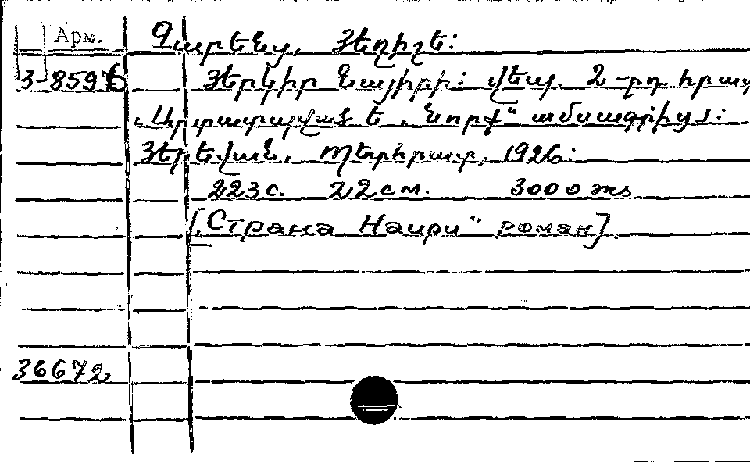 Арм.
Չարենց, Յեղիշե:
3-8597б Յերկիր Նայիրի: Վեպ. 2-րդ հրատ
Արտատպված է „Նորք“ ամսագրից:
Յերեվան, Պետհրատ, 1926:
223с. 22см. 3000 экз
[„Страна Наири“ роман]
36672